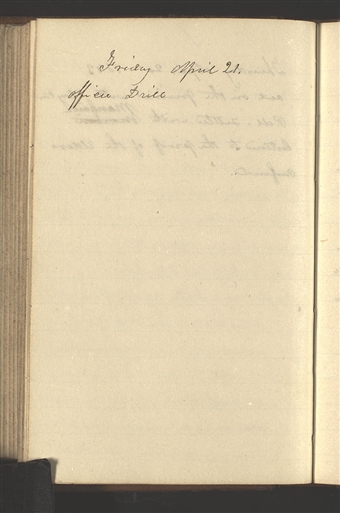 Friday April 21.
officer Drill